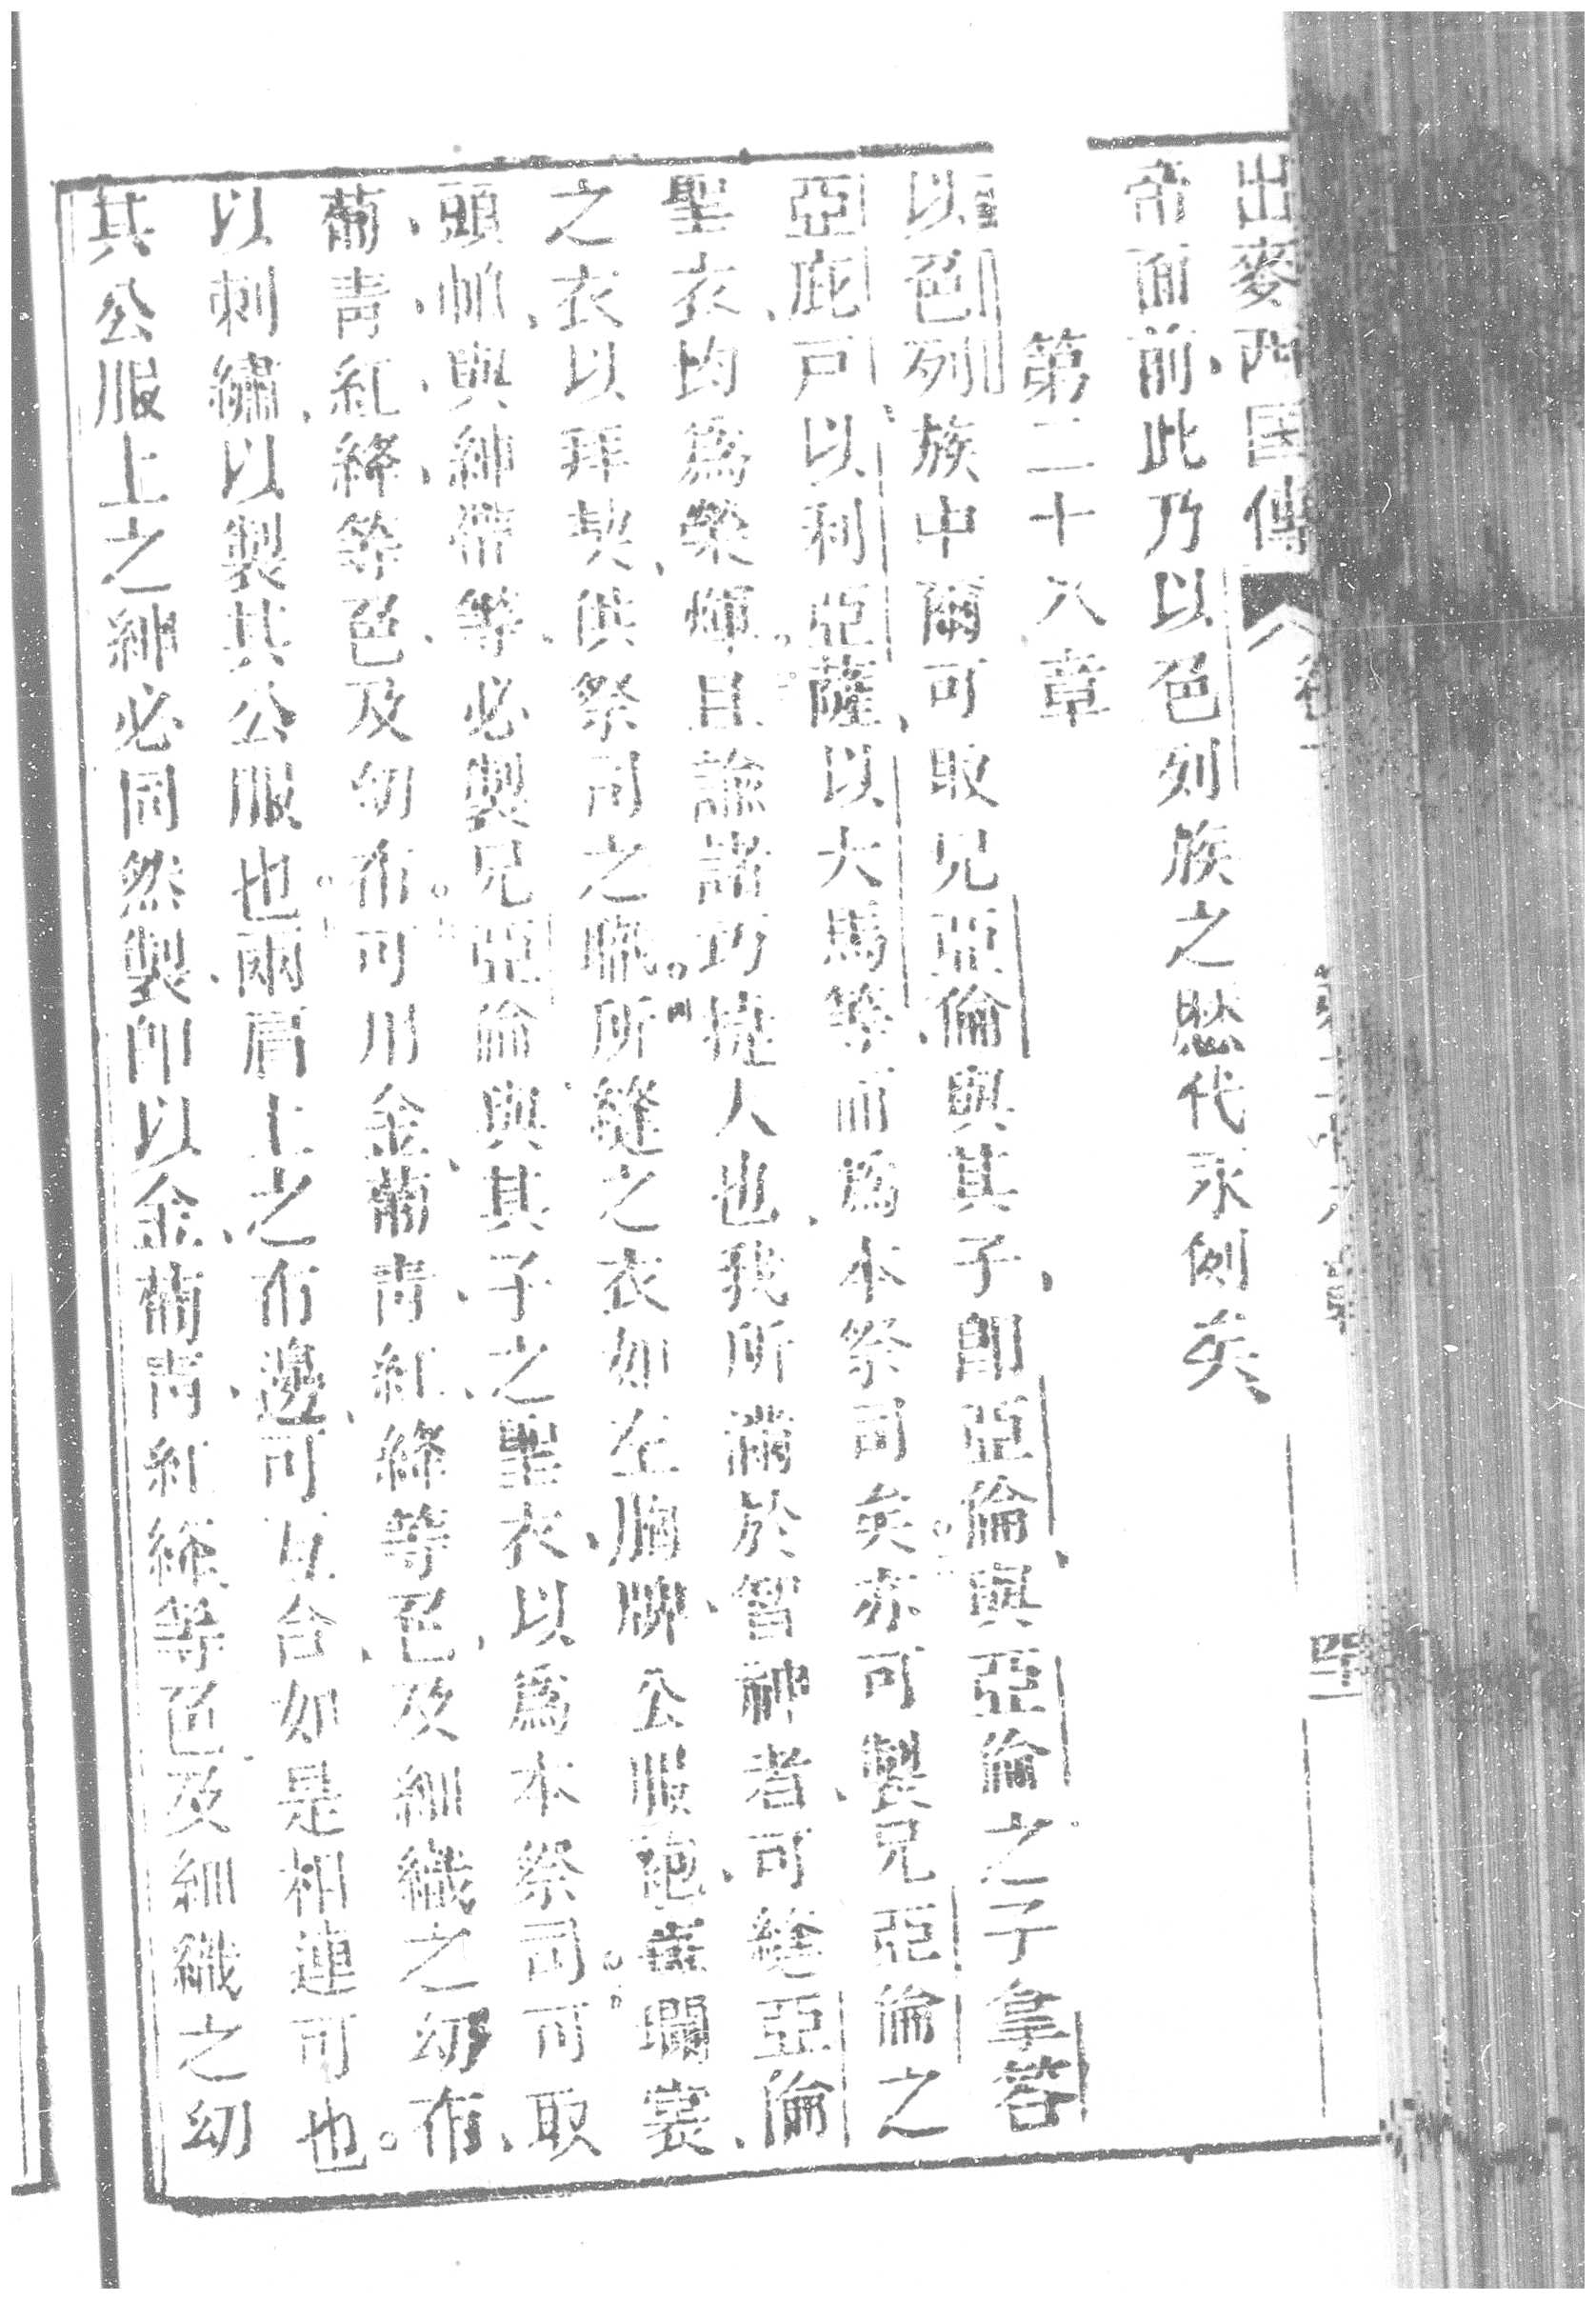 出麥西國傳
帝面前、此乃以色列族之愁代永例矣、
第二十八章
以色列族中爾可取兄亞倫、與其子、即亞倫與亞倫之子、拿答
亞庇戸、以利亞薩、以大馬等、而為本祭司矣。亦可製兄亞倫之
聖衣、均為榮煇。且諭諸巧捷人也、我所滿於智神者、可縫亞倫
之衣、以拜契、供祭司之職。所縫之衣如左、胸牌、公服、袍、嵌斕裳、
頭帕、與紳帶等、必製兄亞倫與其子之聖衣、以為本祭司。可取
葡、青、紅、絳等色、及幼布。可用金、葡、青、紅、絳等色、及細織之幼布、
以刺繡、以製其公服也。兩肩上之布邊、可互合、如是相連可也。
其公服上之紳、必同然製、即以金、葡、青、紅、絳等色、及細織之幼